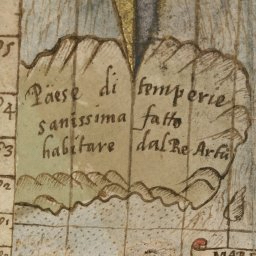 Paese di temperie
sanissima fatto
habitare dal Re Artù